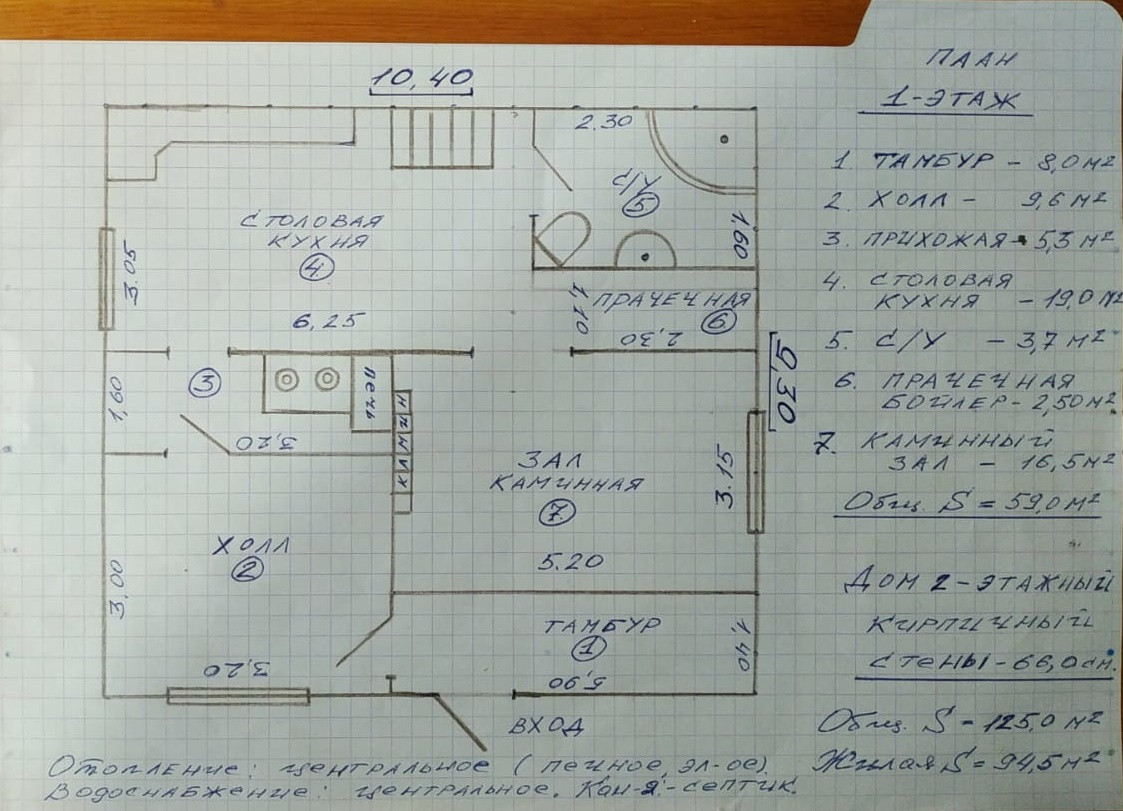 10,40
2.30
С/У
5
1,60
СТОЛОВАЯ
КУХНЯ
4
3.05
6,25
1,10
ПРАЧЕЧНАЯ
6
2,30
9,30
3
1,60
ПЕЧЬ
3,20
ЗАЛ
КАМИННАЯ
7
3.15
5.20
ХОЛЛ
2
3,00
3,20
ТАМБУР
1
1,40
5,90
ВХОД
ПЛАН
1-ЭТАЖ
1. ТАМБУР - 8,0 м²
2. ХОЛЛ - 9,6 м²
3. ПРИХОЖАЯ - 5,3 м²
4. СТОЛОВАЯ
КУХНЯ - 19,0 м²
5. С/У - 3,7 м²
6. ПРАЧЕЧНАЯ
БОЙЛЕР - 2,50 м²
7. КАМИННЫЙ
ЗАЛ - 16,5 м²
Общ. S = 59,0 м²
ДОМ 2-ЭТАЖНЫЙ
КИРПИЧНЫЙ
СТЕНЫ - 66,0 см.
Общ. S - 125,0 м²
Жилая S = 94,5 м²
Отопление: центральное (печное, эл-ое)
Водоснабжение: центральное. Кан-я-септик.